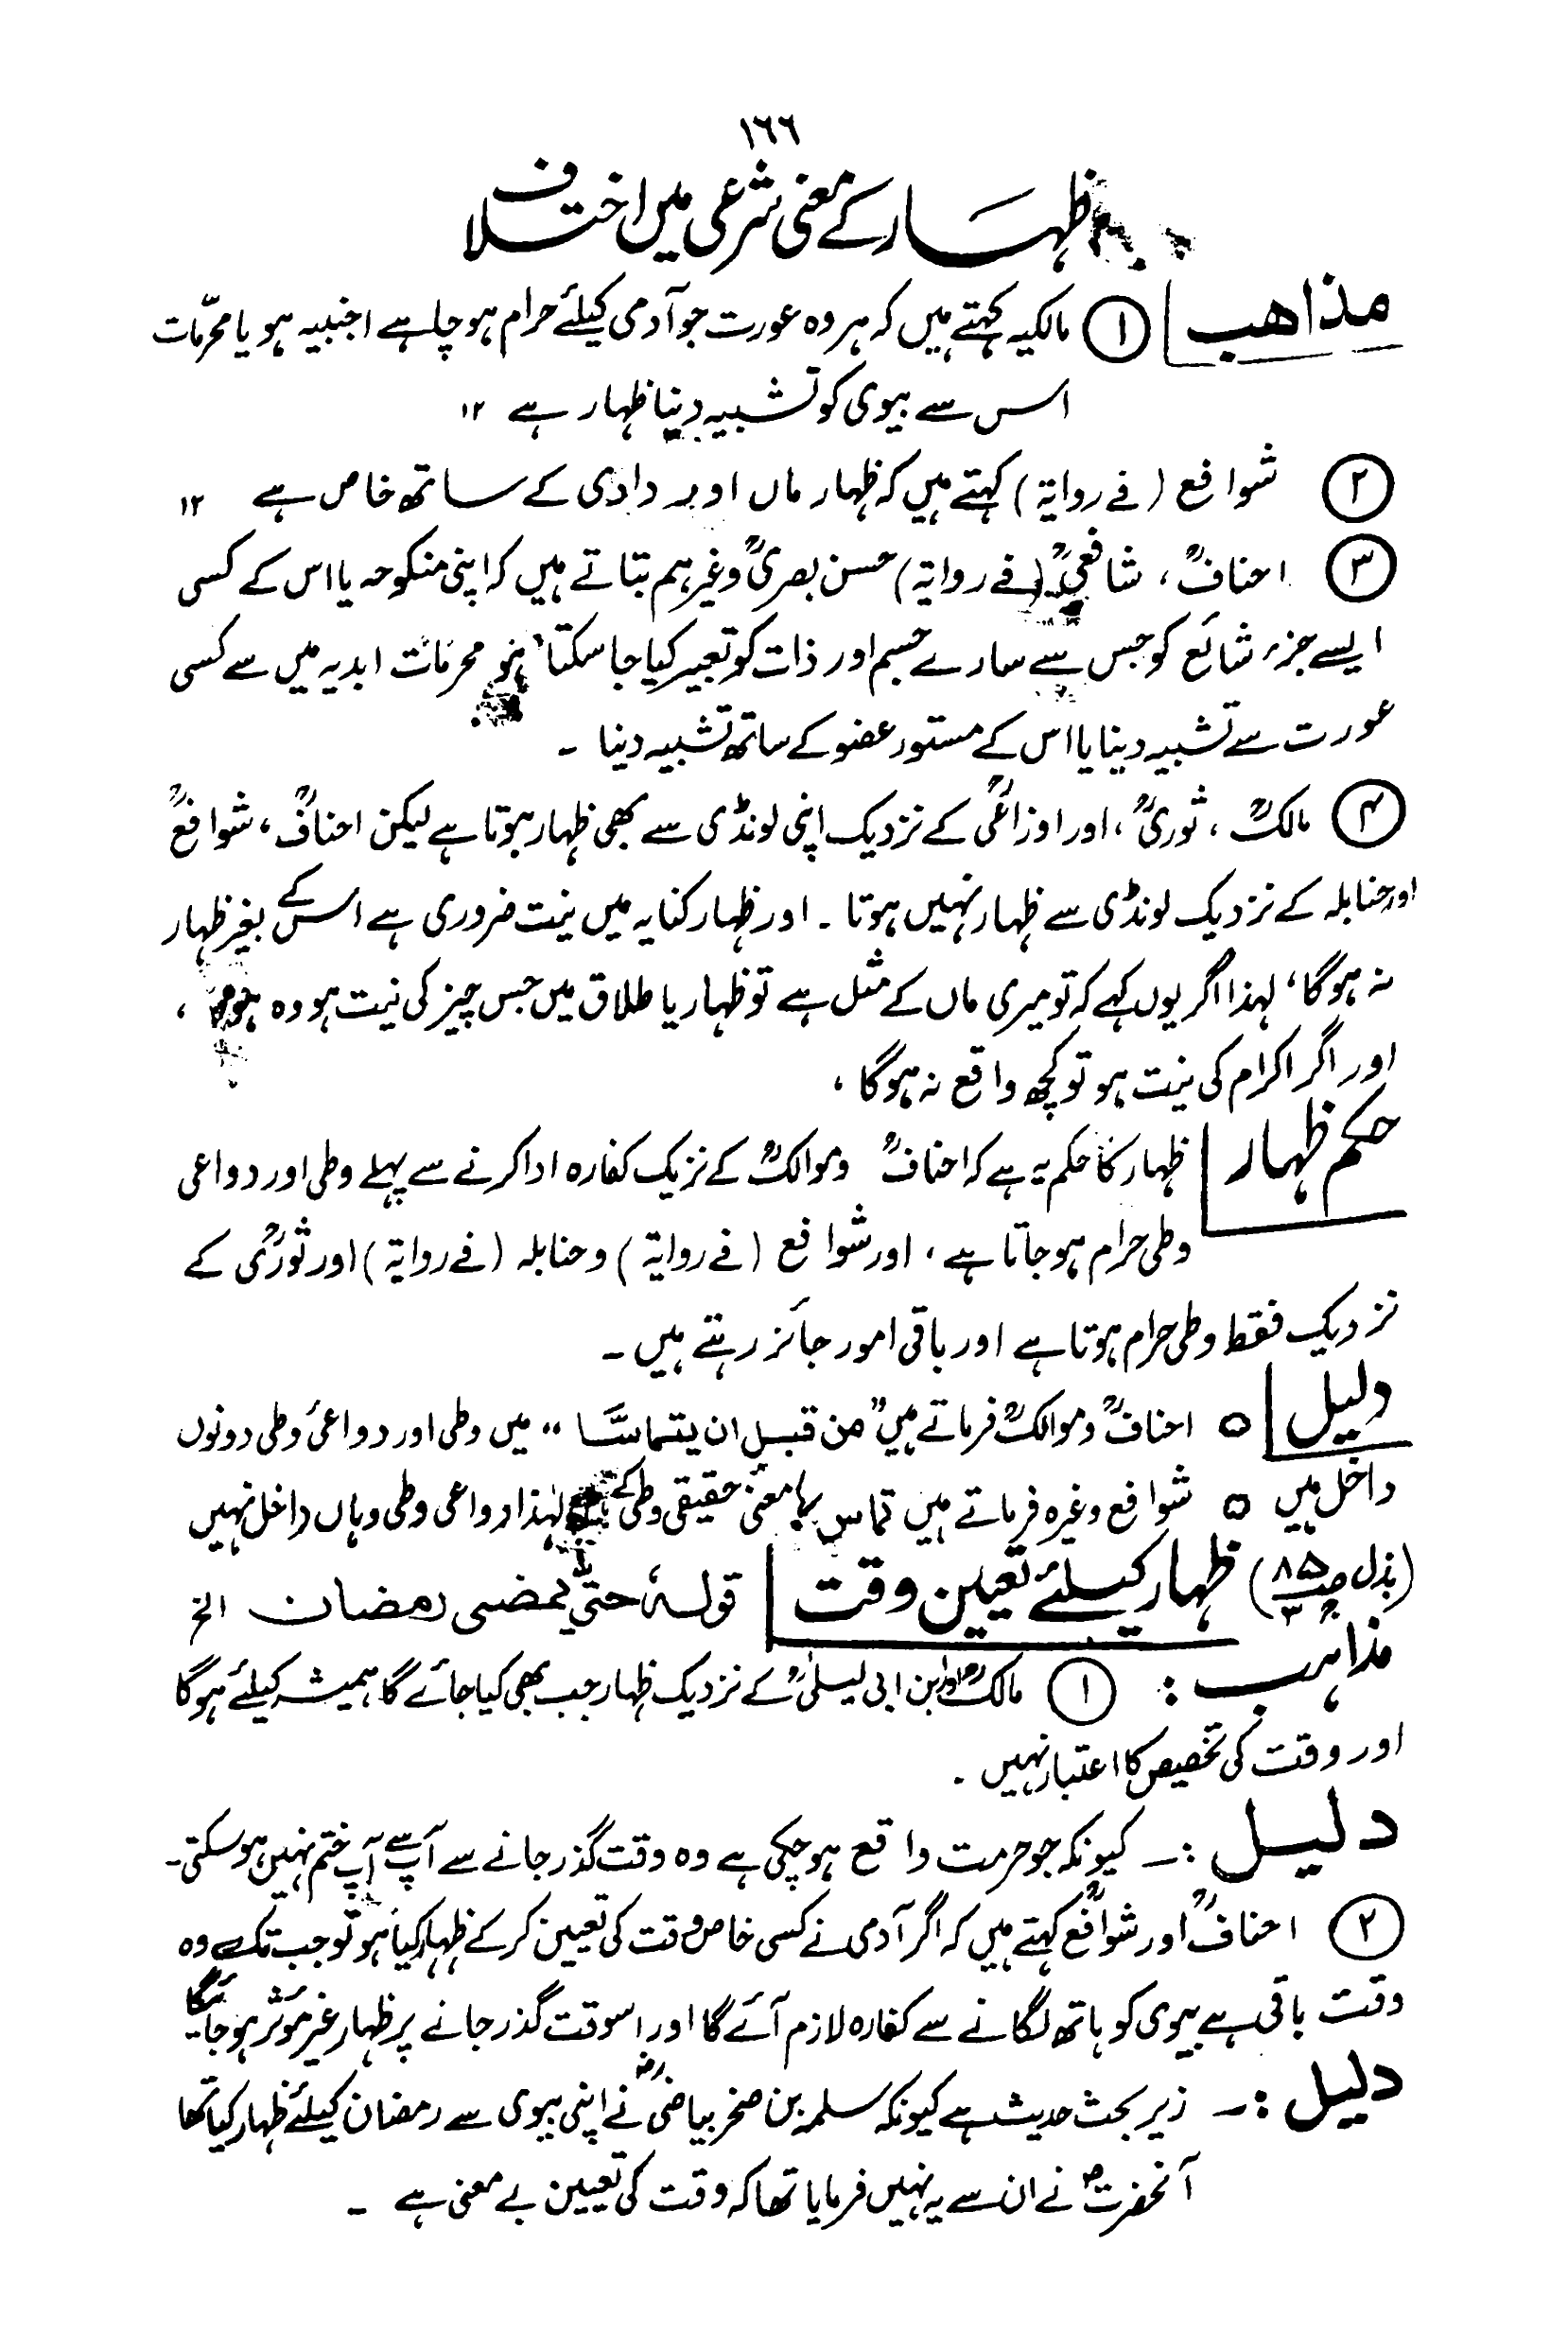 ۱۶۶
ظہار کے معنی شرعی میں اختلاف
مذاھب ① مالکیہ کہتے ہیں کہ ہر وہ عورت جو آدمی کیلئے حرام ہو چاہے اجنبیہ ہو یا محرّمات
اس سے بیوی کو تشبیہ دینا ظہار ہے ۱۲
② شوافع (فے روایۃ) کہتے ہیں کہ ظہار ماں اور دادی کے ساتھ خاص ہے ۱۲
③ احنافؒ، شافعیؒ (فے روایۃ) حسن بصریؒ وغیرہم بتاتے ہیں کہ اپنی منکوحہ یا اس کے کسی
ایسے جزء شائع کو جس سے سارے جسم اور ذات کو تعبیر کیا جا سکتا ہو محرمات ابدیہ میں سے کسی
عورت سے تشبیہ دینا یا اس کے مستور عضو کے ساتھ تشبیہ دینا ۔
④ مالکؒ، ثوریؒ، اور اوزاعیؒ کے نزدیک اپنی لونڈی سے بھی ظہار ہوتا ہے لیکن احنافؒ، شوافعؒ
اور حنابلہ کے نزدیک لونڈی سے ظہار نہیں ہوتا ۔ اور ظہار کنایہ میں نیت ضروری ہے اس کے بغیر ظہار
نہ ہوگا، لہذا اگر یوں کہے کہ تو میری ماں کے مثل ہے تو ظہار یا طلاق میں جس چیز کی نیت ہو وہ ہوگا،
اور اگر اکرام کی نیت ہو تو کچھ واقع نہ ہوگا،
حکم ظہار ظہار کا حکم یہ ہے کہ احنافؒ وموالکؒ کے نزیک کفارہ ادا کرنے سے پہلے وطی اور دواعی
وطی حرام ہو جاتا ہے، اور شوافع (فے روایۃ) وحنابلہ (فے روایۃ) اور ثوریؒ کے
نزدیک فقط وطی حرام ہوتا ہے اور باقی امور جائز رہتے ہیں ۔
دلیل ○ احنافؒ وموالکؒ فرماتے ہیں ”من قبل ان یتماسَّا“ میں وطی اور دواعئ وطی دونوں
داخل ہیں ○ شوافع وغیرہ فرماتے ہیں تماس کا معنی حقیقی وطی کے لہٰذا دواعی وطی وہاں داخل نہیں
(بذل ص۸۵ ج۳) ظہار کیلئے تعیین وقت قولہٗ حتّٰی یمضی رمضان الخ
مذاہب : ① مالکؒ اور ابن ابی لیلیٰؒ کے نزدیک ظہار جب بھی کیا جائے گا ہمیشہ کیلئے ہوگا
اور وقت کی تخصیص کا اعتبار نہیں ۔
دلیل :۔ کیونکہ جو حرمت واقع ہو چکی ہے وہ وقت گذر جانے سے آپ سے آپ ختم نہیں ہوسکتی۔
② احنافؒ اور شوافعؒ کہتے ہیں کہ اگر آدمی نے کسی خاص وقت کی تعیین کر کے ظہار کیا ہو تو جب تک وہ
وقت باقی ہے بیوی کو ہاتھ لگانے سے کفارہ لازم آئے گا اور اسوقت گذر جانے پر ظہار غیر مؤثر ہو جائیگا۔
دلیل :۔ زیر بحث حدیث ہے کیونکہ سلمہ بن صخر بیاضیؓ نے اپنی بیوی سے رمضان کیلئے ظہار کیا تھا
آنحضرتؐ نے ان سے یہ نہیں فرمایا تھا کہ وقت کی تعیین بے معنی ہے ۔